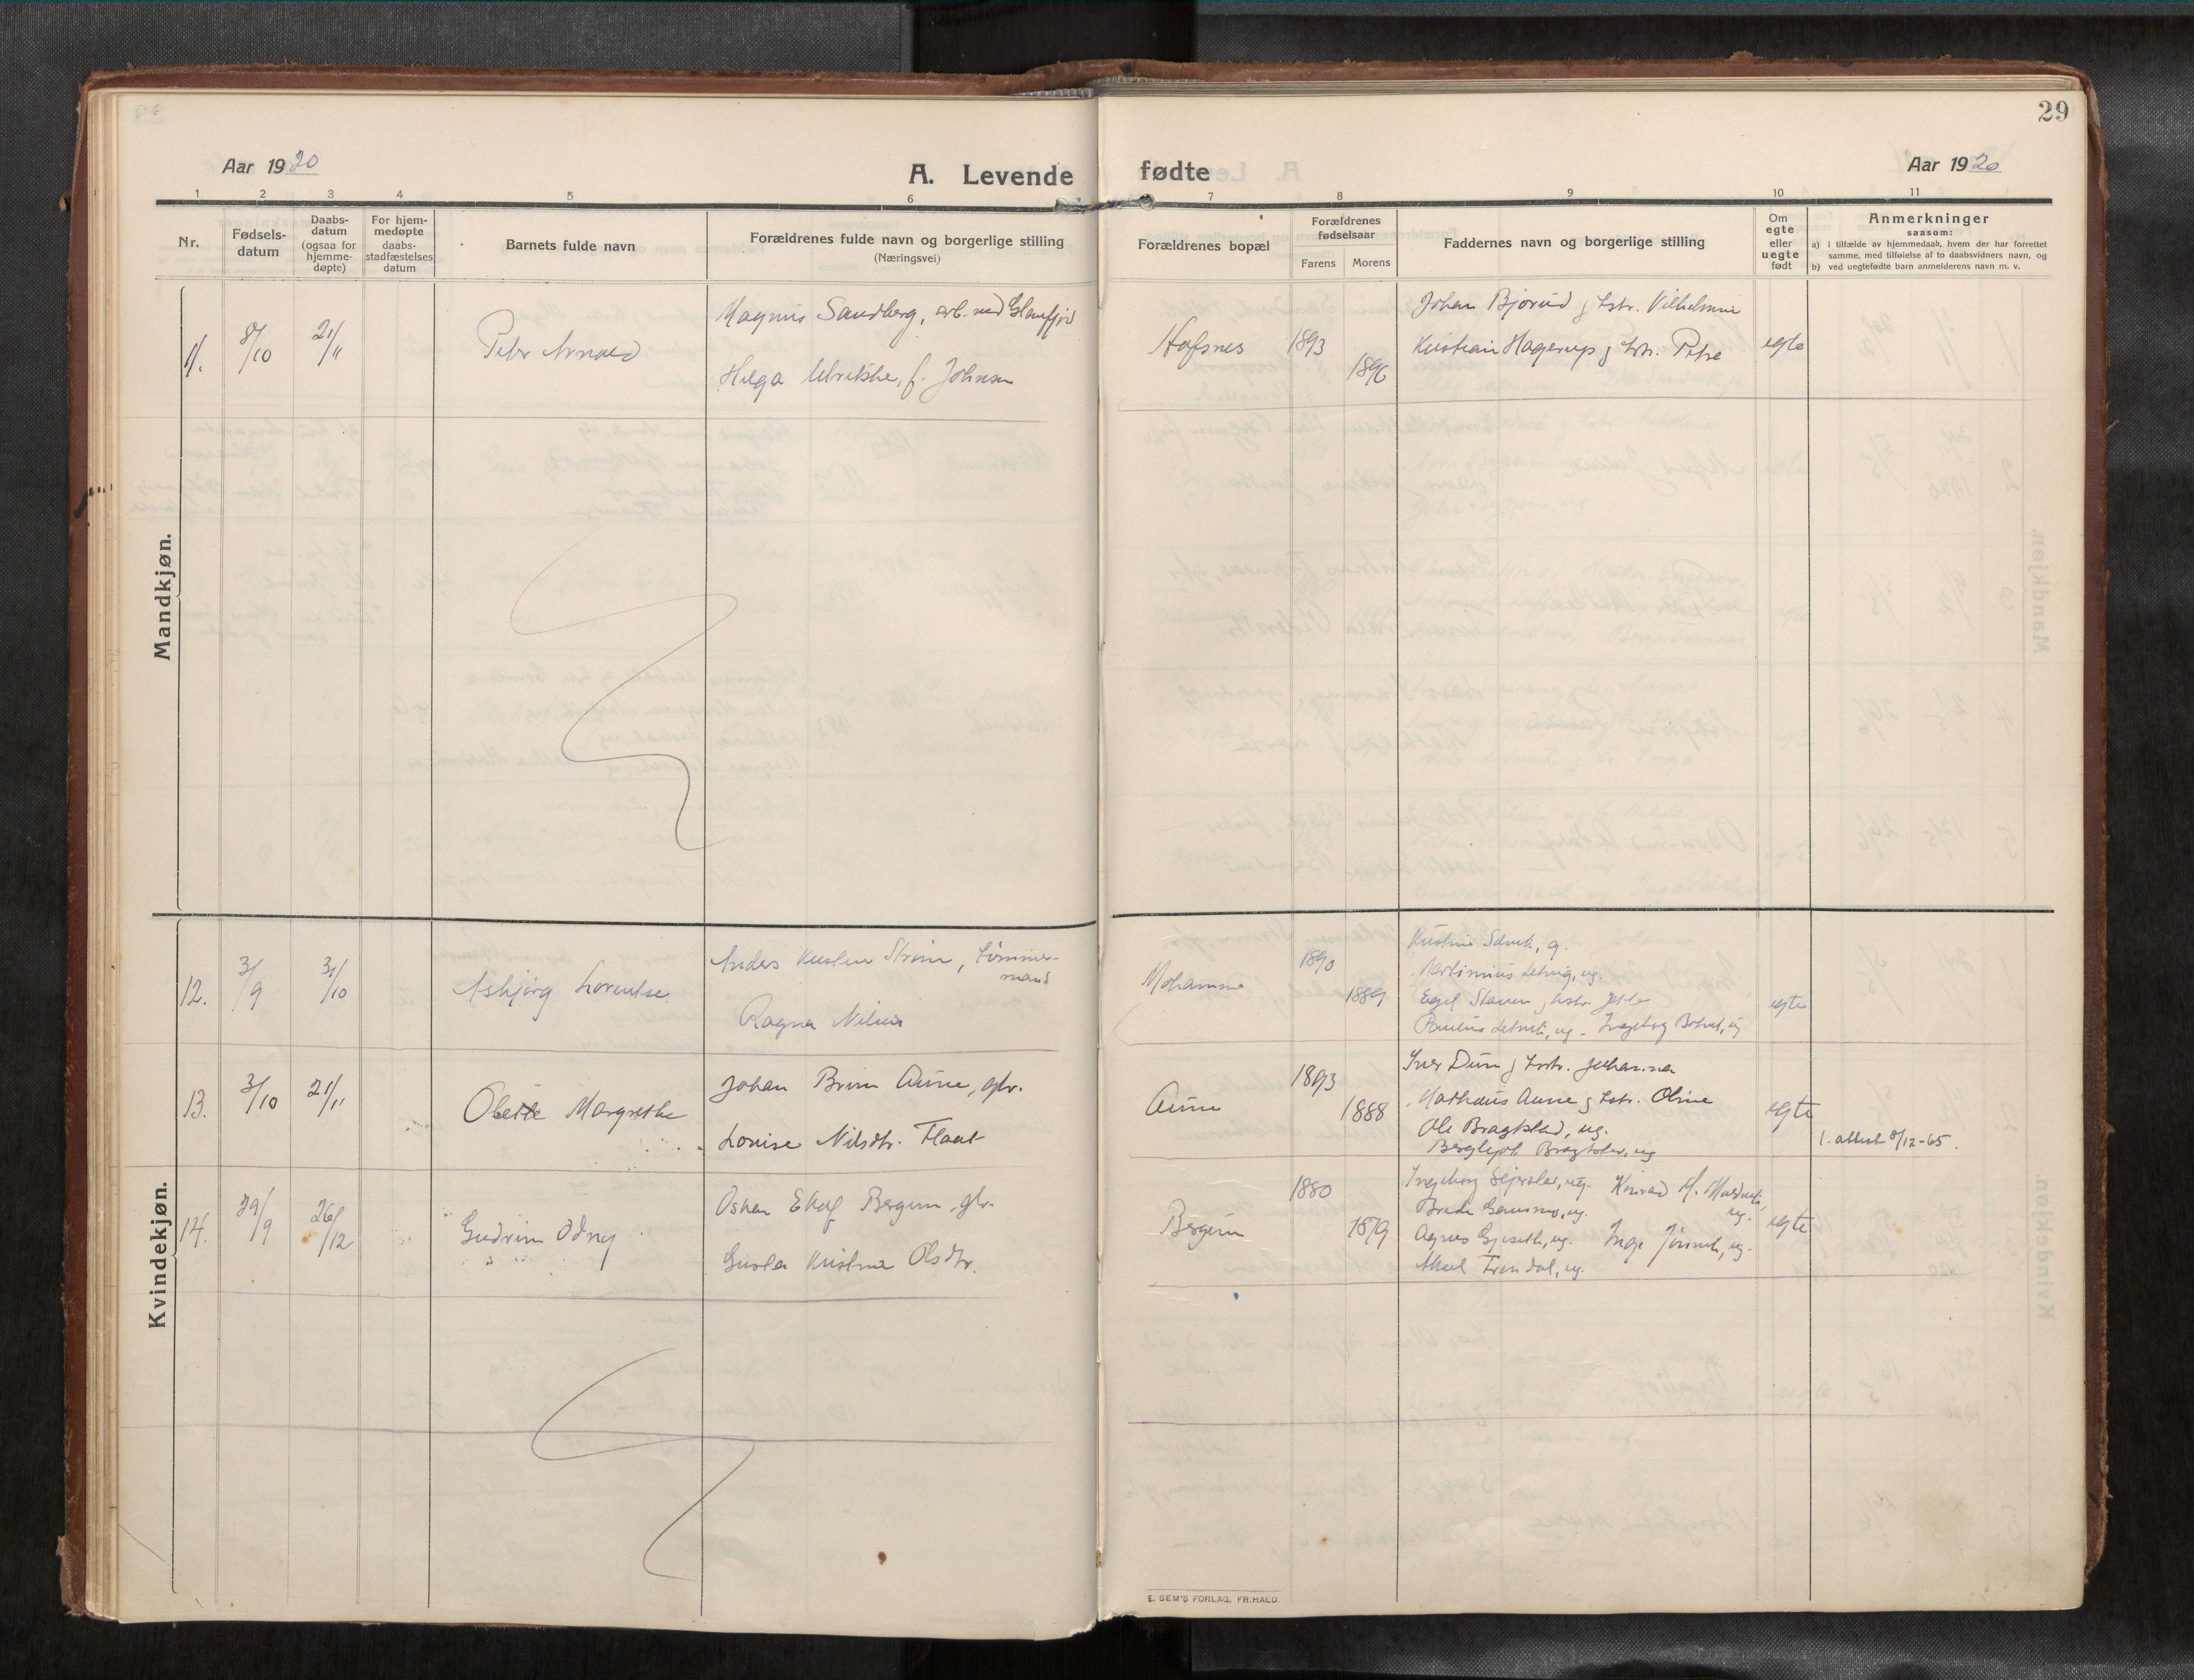 29
Aar 1920
A. Levende fødte
Aar 1920
1 2 3 4 5 6 7 8 9 10 11
Nr.
Fødsels-
datum
Daabs-
datum
(ogsaa for
hjemme-
døpte)
For hjem-
medøpte
daabs-
stadfæstelses
datum
Barnets fulde navn
Forældrenes fulde navn og borgerlige stilling
(Næringsvei)
Forældrenes bopæl
Forældrenes
fødselsaar
Farens Morens
Faddernes navn og borgerlige stilling
Om
egte
eller
uegte
født
Anmerkninger
saasom:
a) i tilfælde av hjemmedaab, hvem der har forrettet
samme, med tilføielse af to daabsvidners navn, og
b) ved uegtefødte barn anmelderens navn m. v.
Mandkjøn.
11. 8/10 21/11 Peter Arnold
Magnus Sandberg, arb. ved Glomfjord
Helga Ulrikke, f. Johnsen
Hofsnes 1893 1896
Johan Bjørud g hstr. Vilhelmine
Kristian Hagerup g hstr. Petra
egte
Kvindekjøn.
12. 3/9 31/10 Asbjørg Lorentse
Anders Kristen Strøm, tømmer-
mand
Ragna Nilsen
Mohamna 1890 1889
Kristine Selnek, g.
Martinius Setvig, ug.
Egil Stauren g hstr.
Paulus, ug. Ingeborg, ug
egte
13. 3/10 21/11 Margrethe
Johan Brun Aune, gbr.
Lovise Nilsdtr. Flaat
Aune 1893 1888
Iver Dun g hstr. Johanna
Mathæus Aune g hstr. Oline
Ole Bragstad, ug.
Bergljot, ug
egte
1. attest 8/12-65.
14. 29/9 26/12 Gudrun Odny
Oskar Bergum, gbr.
Kristine Olsdtr.
Bergum 1880 1879
Ingeborg, ug. M.
ug.
ug.
Agnes Gjeseth, ug. Inga, ug.
ug.
egte
E. SEM'S FORLAG, FR.HALD.